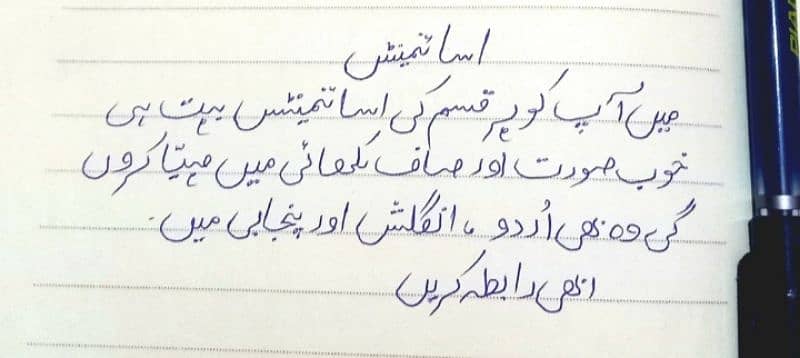 اسائنمنٹس
میں آپ کو ہر قسم کی اسائنمنٹس بہت ہی
خوب صورت اور صاف لکھائی میں مہیّا کروں
گی وہ بھی اُردو ، انگلش اور پنجابی میں۔
ابھی رابطہ کریں